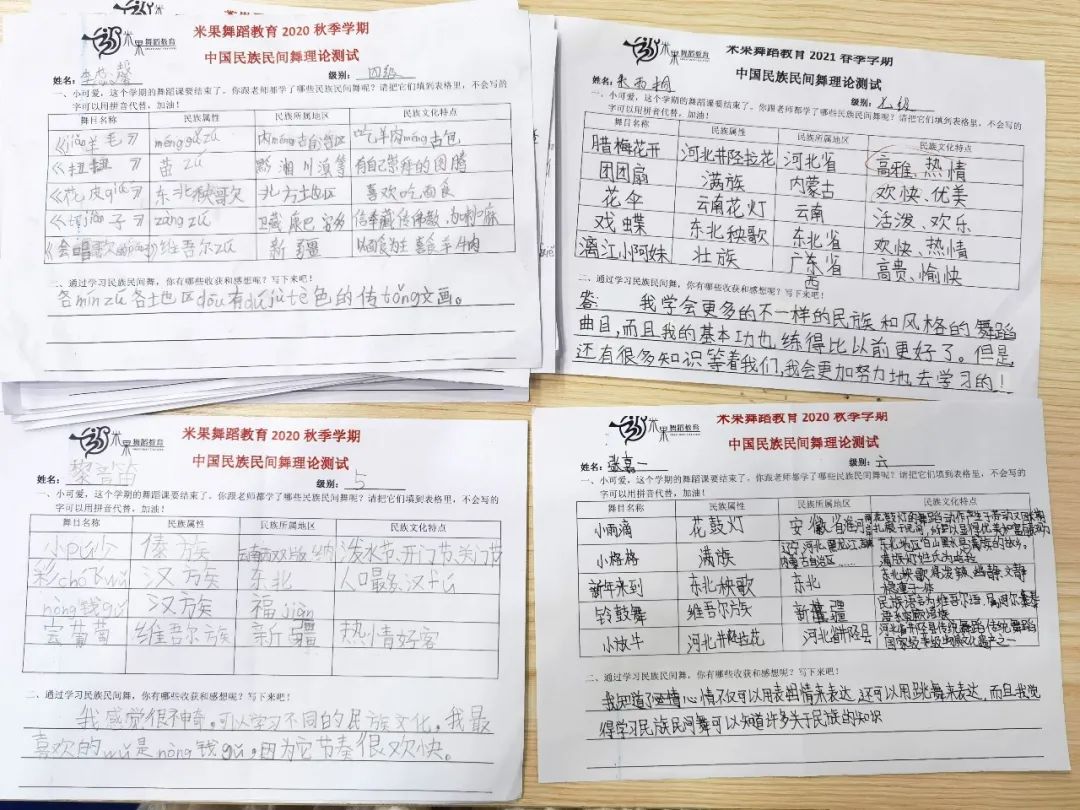 米果舞蹈教育
米果舞蹈教育 2020 秋季学期
中国民族民间舞理论测试
姓名：李 馨 级别：四级
一、小可爱，这个学期的舞蹈课要结束了，你跟老师都学了哪些民族民间舞呢？请把它们填到表格里，不会写的
字可以用拼音代替，加油！
舞目名称 民族属性 民族所属地区 民族文化特点
《jiǎn羊毛》 měnggǔzú 内měng古自治区 吃羊肉měng古包
《扭扭》 苗zú 黔湘川滇等 有自己崇拜的图腾
《花皮qiú》 东北秧歌 北方地区 喜欢吃面食
zàngzú 卫藏 康巴 安多
《会唱歌 》 维吾尔zú 新疆
二、通过学习民族民间舞，你有哪些收获和感想呢？写下来吧！
各mínzú各土也区dōu有dújùtè色的传tǒng文画。
米果舞蹈教育
米果舞蹈教育 2021 春季学期
中国民族民间舞理论测试
姓名：张西桐 级别：七级
一、小可爱，这个学期的舞蹈课要结束了，你跟老师都学了哪些民族民间舞呢？请把它们填到表格里，不会写的
字可以用拼音代替，加油！
舞目名称 民族属性 民族所属地区 民族文化特点
腊梅花开 河北井陉拉花 河北省 高雅、热情
团团扇 满族 内蒙古 欢快、优美
花伞 云南花灯 云南 活泼、欢乐
戏蝶 东北秧歌 东北省 欢快、热情
漓江小阿妹 壮族 广西省 高贵、愉快
二、通过学习民族民间舞，你有哪些收获和感想呢？写下来吧！
答： 我学会更多的不一样的民族和风格的舞蹈
曲目，而且我的基本功也练得比以前更好了。但是，
还有很多知识等着我们，我会更加努力地去学习的！
米果舞蹈教育
米果舞蹈教育 2020 秋季学期
中国民族民间舞理论测试
姓名：黎音笛 级别：5
一、小可爱，这个学期的舞蹈课要结束了，你跟老师都学了哪些民族民间舞呢？请把它们填到表格里，不会写的
字可以用拼音代替，加油！
舞目名称 民族属性 民族所属地区 民族文化特点
傣族 云南西双版纳 泼水节、开门节、关门节
彩chóu飞wǔ 汉族 东北 人口最多、汉fú
nòng钱gǔ 汉族 福jiàn
葡萄 维吾尔族 新疆 热情好客
二、通过学习民族民间舞，你有哪些收获和感想呢？写下来吧！
我感觉很神奇，可以学习不同的民族文化，我最
喜欢的wǔ是nòng钱gǔ，因为它节奏很欢快。
米果舞蹈教育
米果舞蹈教育 2020 秋季学期
中国民族民间舞理论测试
姓名：张嘉一 级别：六
一、小可爱，这个学期的舞蹈课要结束了，你跟老师都学了哪些民族民间舞呢？请把它们填到表格里，不会写的
字可以用拼音代替，加油！
舞目名称 民族属性 民族所属地区 民族文化特点
小雨滴 花鼓灯 安徽省淮河
小格格 满族 辽宁 河北 黑龙江 内蒙古自治区……
新年来到 东北秧歌 东北
铃鼓舞 维吾尔族 新疆 民族语言为维吾尔语，
小放牛 河北井陉拉花 河北省井陉县 河北省井陉县传统舞蹈
二、通过学习民族民间舞，你有哪些收获和感想呢？写下来吧！
我知道了 心情不仅可以用表情来表达，还可以用跳舞来表达，而且我觉
得学习民族民间舞可以知道许多关于民族的知识